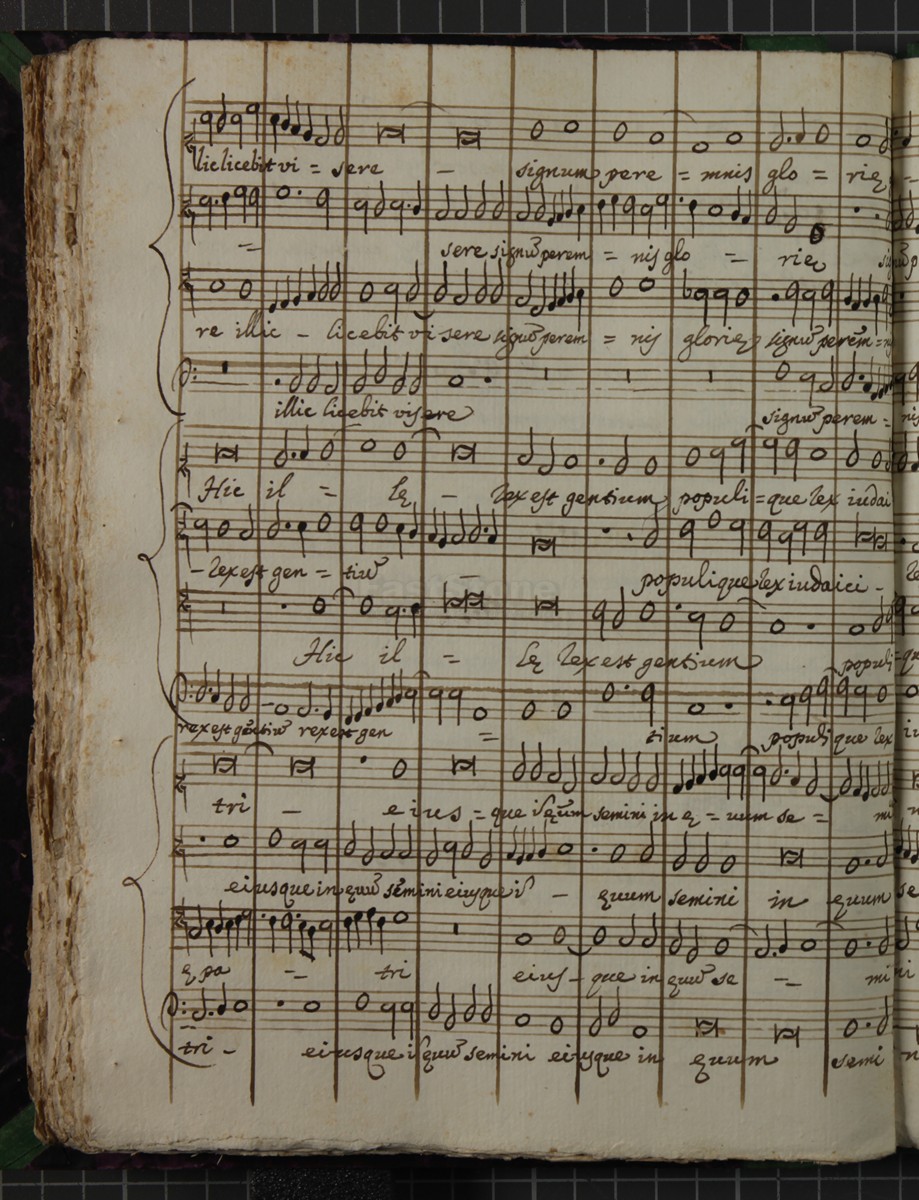 llic licebit vi = sere - signum pere = mnis glo = rię
= sere signũ perem = nis glo = rię
re illic - licebit vi sere signũ perem = nis glorię signũ perem =
illic licebit visere signũ perem = nis
Hic il = lę - lex est gentium populi = que lex iudai
- lex est gen = tiũ - populique lex iudaici -
Hic il = lę lex est gentium populi = qu
rex est gẽtiũ rex est gen = tium populi que lex
tri - eius = que semini in ę = uum se = mi
eiusque in ęuũ sẽmini eiusque i - ęuum semini in ęuum se
ę pa - tri eius - que in ęuũ se - mi ni
tri - eiusque ęuũ semini eiusque in ęuum semi